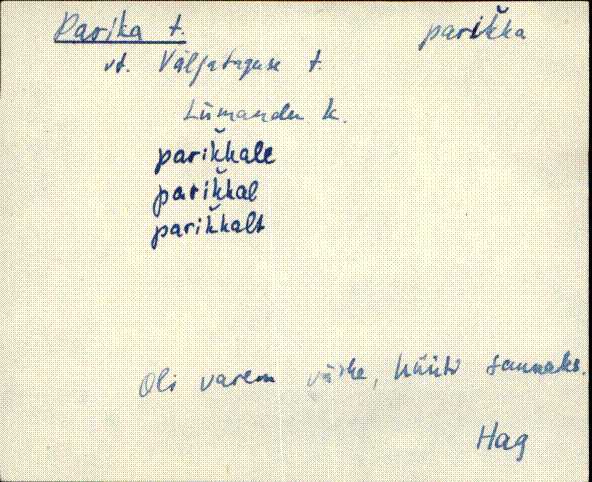 Parika t. parik̆ka
vt. Väljataguse t.
Liimandu k.
parik̆kale
parik̆kal
parik̆kalt
Oli varem väike, hüüti saunaks.
Hag